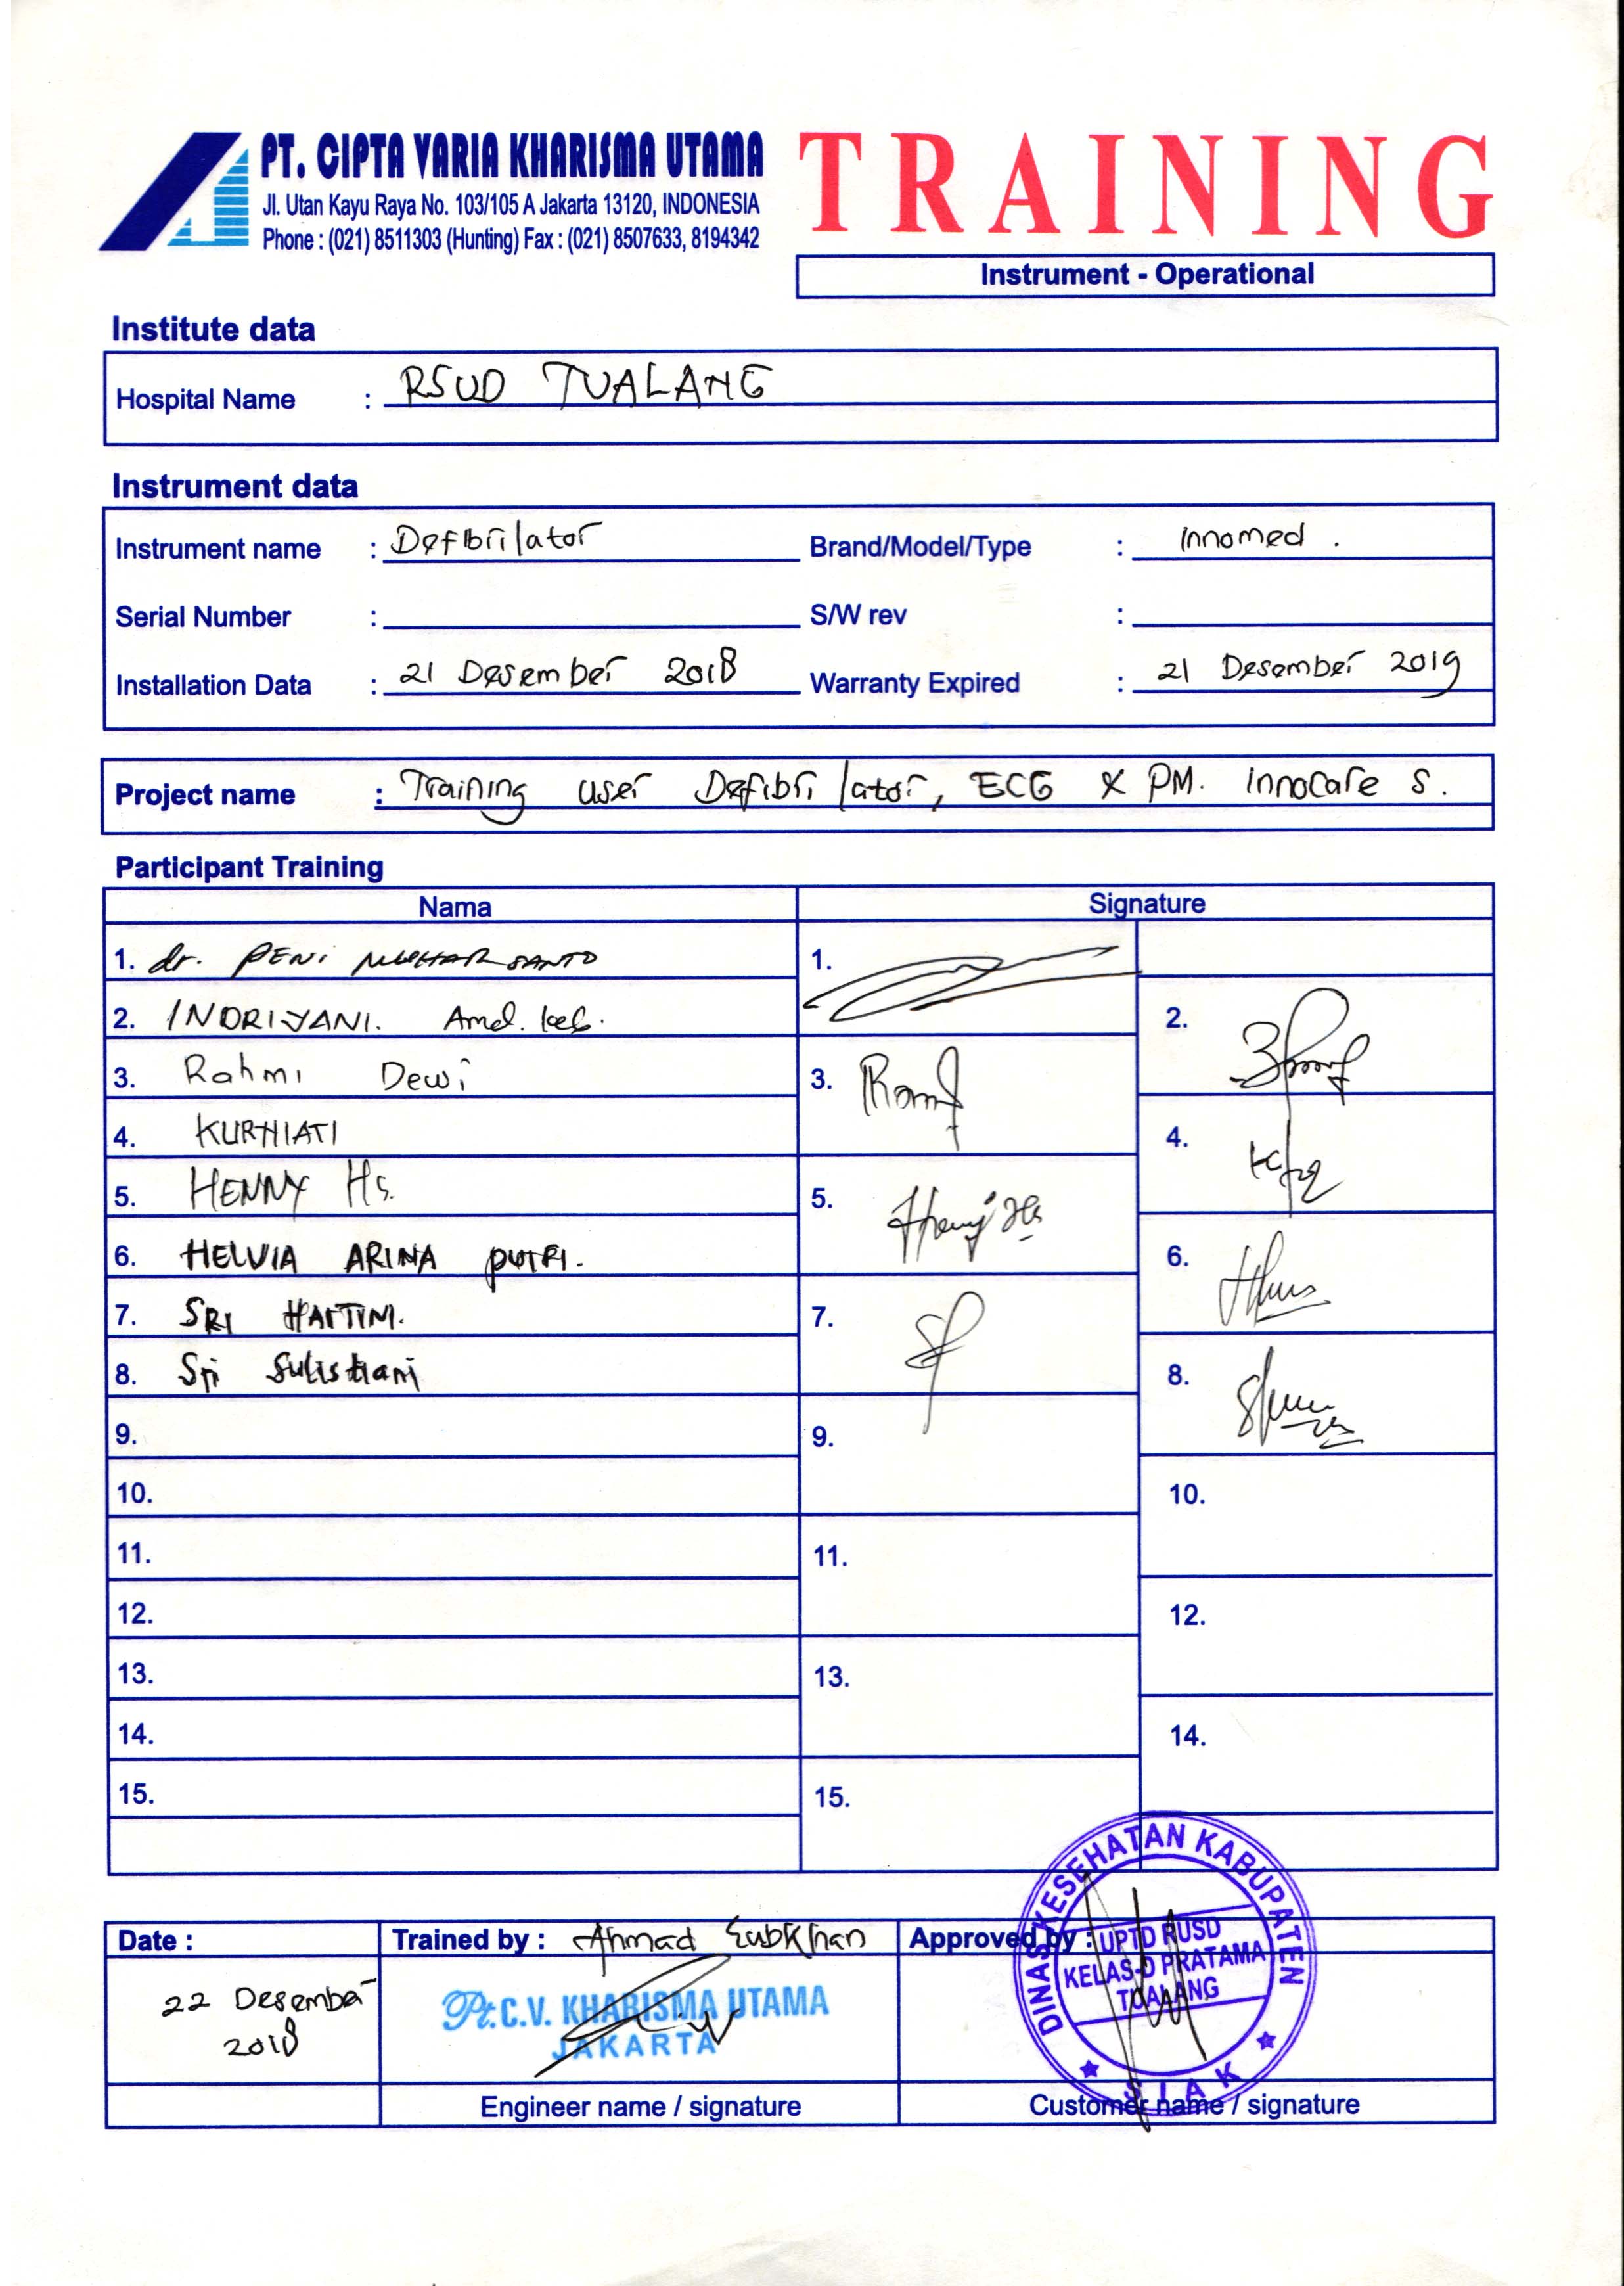 PT. CIPTA VARIA KHARISMA UTAMA
Jl. Utan Kayu Raya No. 103/105 A Jakarta 13120, INDONESIA
Phone : (021) 8511303 (Hunting) Fax : (021) 8507633, 8194342
TRAINING
Instrument - Operational
Institute data
Hospital Name : RSUD TUALANG
Instrument data
Instrument name : Defibrilator Brand/Model/Type : innomed .
Serial Number : S/W rev :
Installation Data : 21 Desember 2018 Warranty Expired : 21 Desember 2019
Project name : Training user Defibrilator, ECG & PM. Innocare S.
Participant Training
Nama Signature
1. dr. PENI 1.
2. INDRIYANI. Amd. keb. 2.
3. Rahmi Dewi 3.
4. KURNIATI 4.
5. HENNY Hs. 5.
6. HELVIA ARINA PUTRI. 6.
7. SRI HARTINI. 7.
8. Sri Sulistiani 8.
9. 9.
10. 10.
11. 11.
12. 12.
13. 13.
14. 14.
15. 15.
Date : Trained by : Ahmad SubKhan Approved by :
22 Desember
2018
Pt.C.V. KHARISMA UTAMA
JAKARTA
DINAS KESEHATAN KABUPATEN
UPTD RUSD
KELAS-D PRATAMA
TUALANG
SIAK
Engineer name / signature Customer name / signature